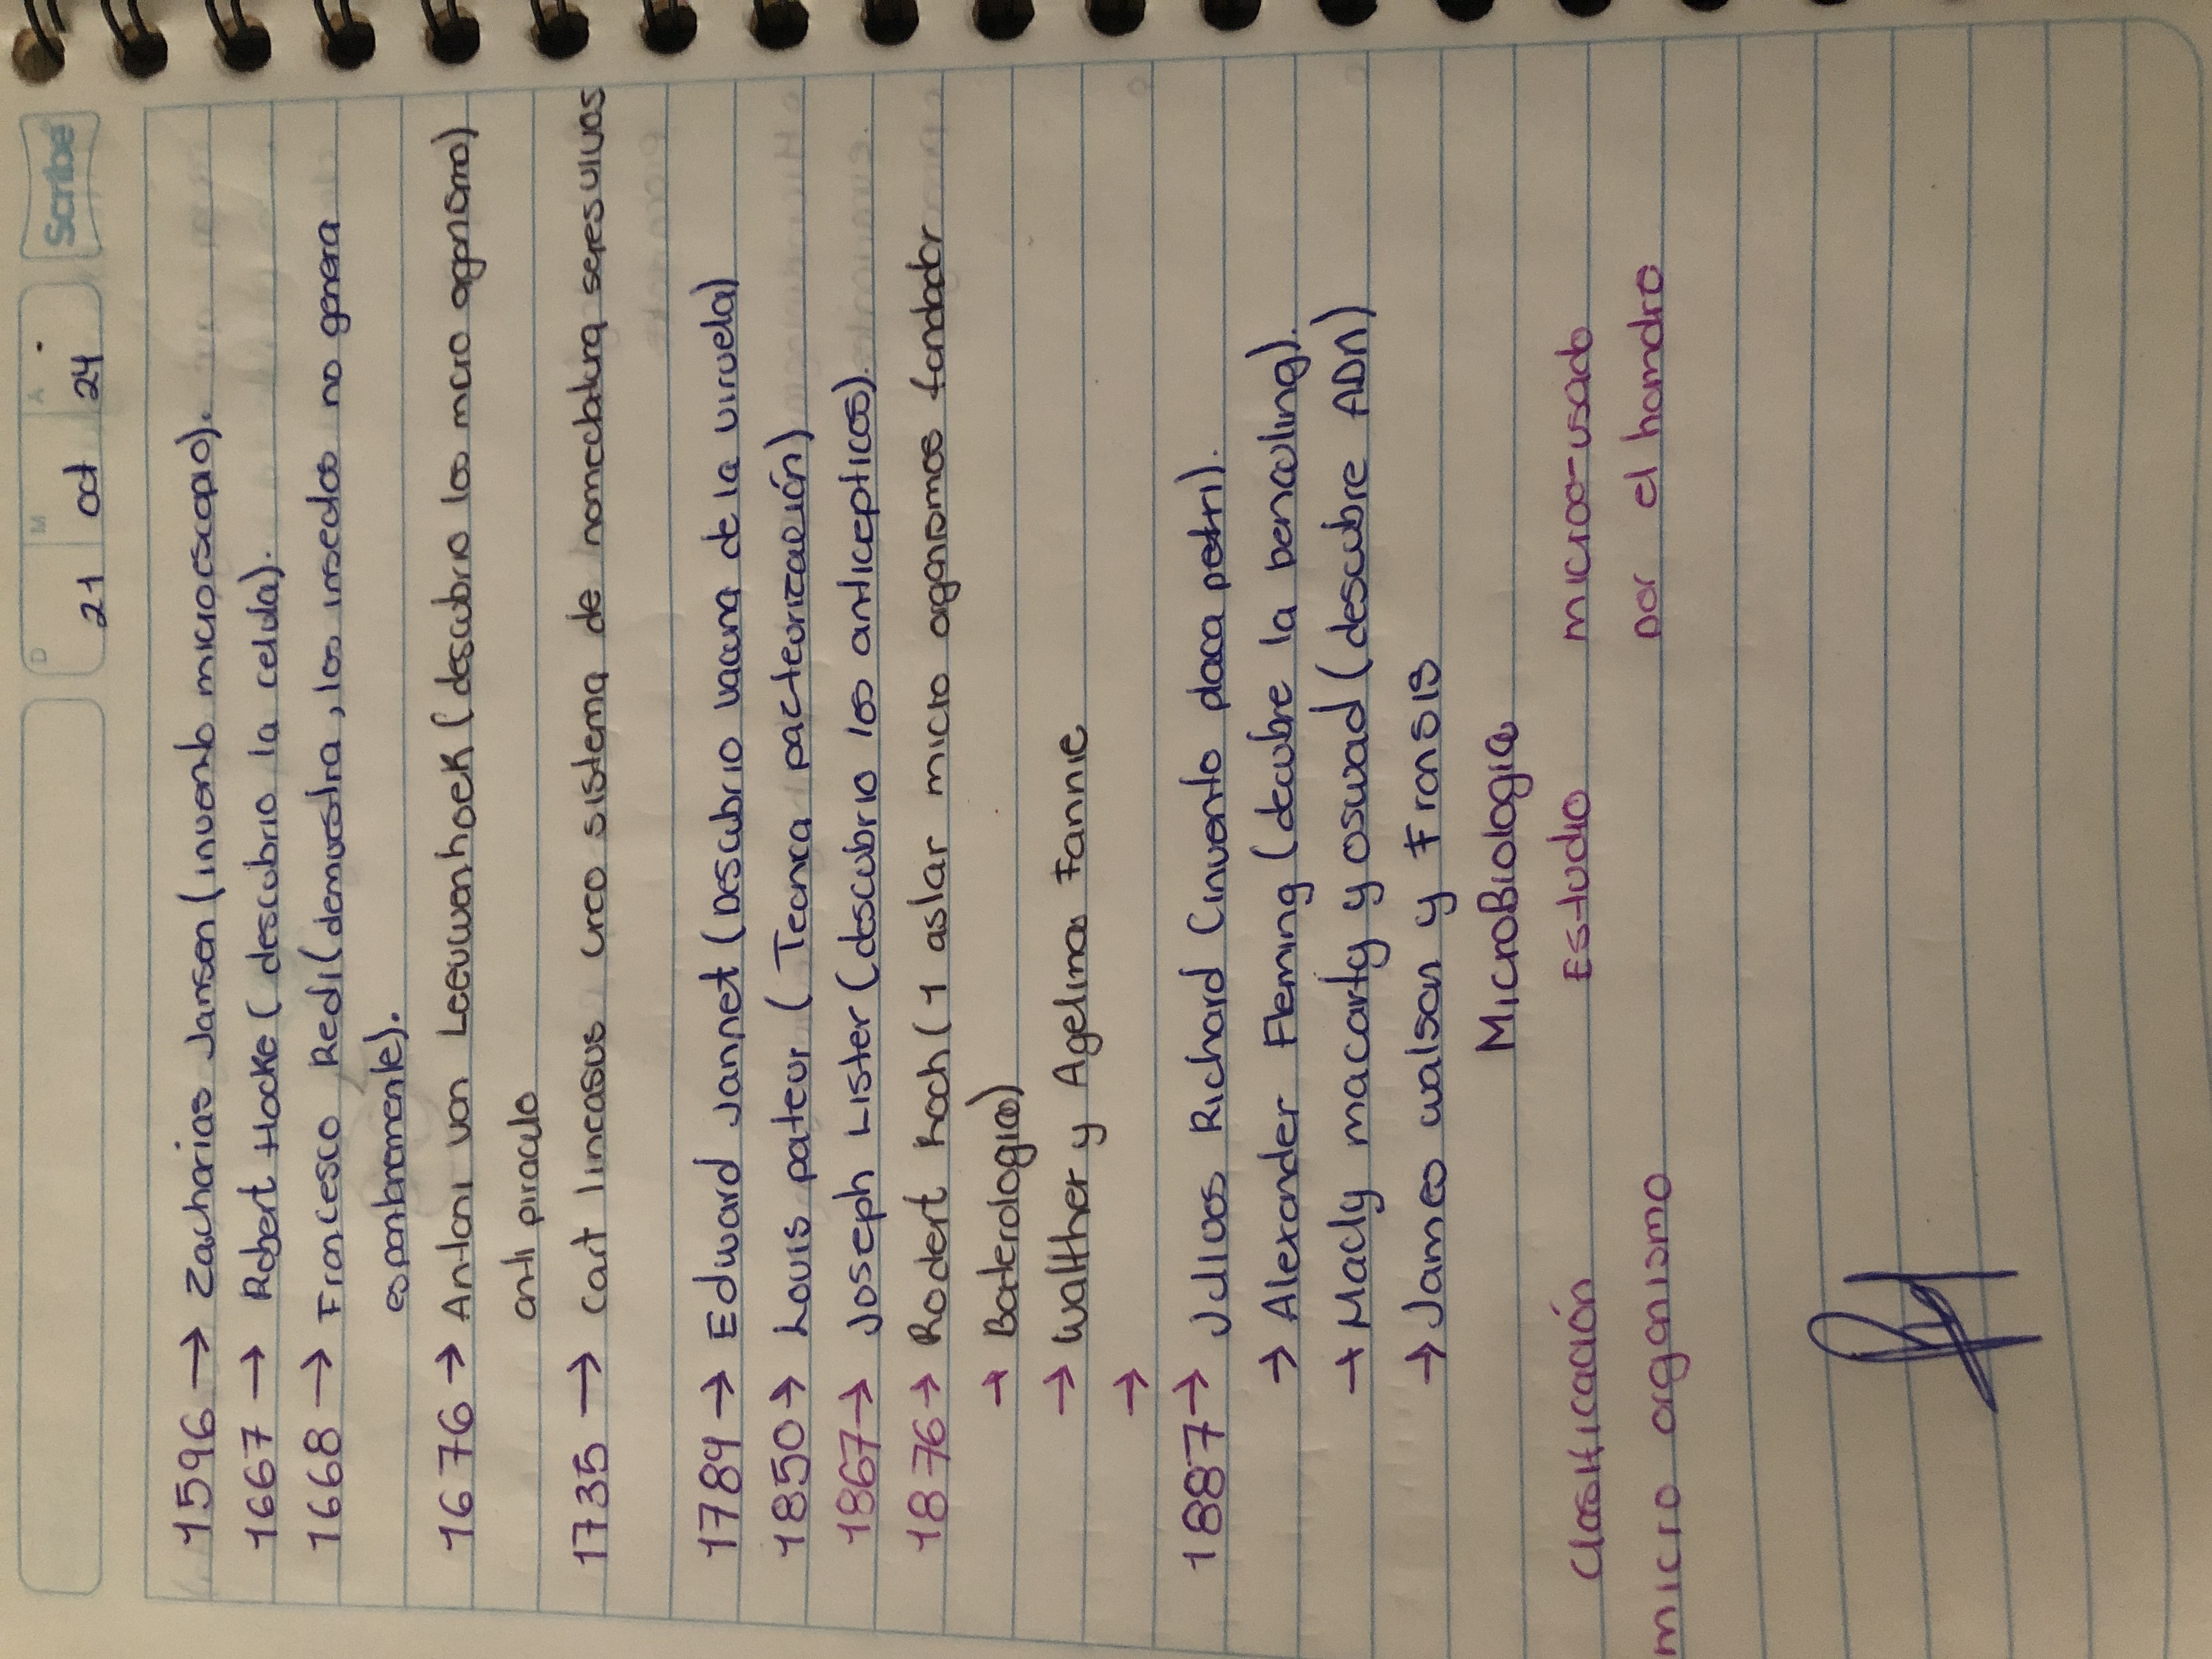 Scribe
D M A
21 oct 24
1596 → Zacharias Janson (invento microescopio).
1667 → Robert Hooke (descubrio la celula).
1668 → Francesco Redi (demuestra, los insectos no genera
espontaneamente).
1676 → Antoni von Leeuwenhoek (descubrio los micro agonismo)
anti piraculo
1735 → Cart lineasus creo sistema de nomeclatura seres vivos
1789 → Edward Jannet (Descubrio vacuna de la viruela)
1850 → Louis pateur (Tecnica pacteurización)
1867 → Joseph Lister (descubrio los anticepticos).
1876 → Rodert hoch (1 aslar micro organismos fondador
→ Baterologia)
→ Walther y Agelina Fannie
→
1887 → Julios Richard (invento placa petri).
→ Alexander Fleming (decubre la benicilina).
→ Macly macarty y oswad (descubre ADN)
→ James walson y Fransis
MicroBiologia
Clasificación Estudio micro-usado
micro organismo por el hamdro